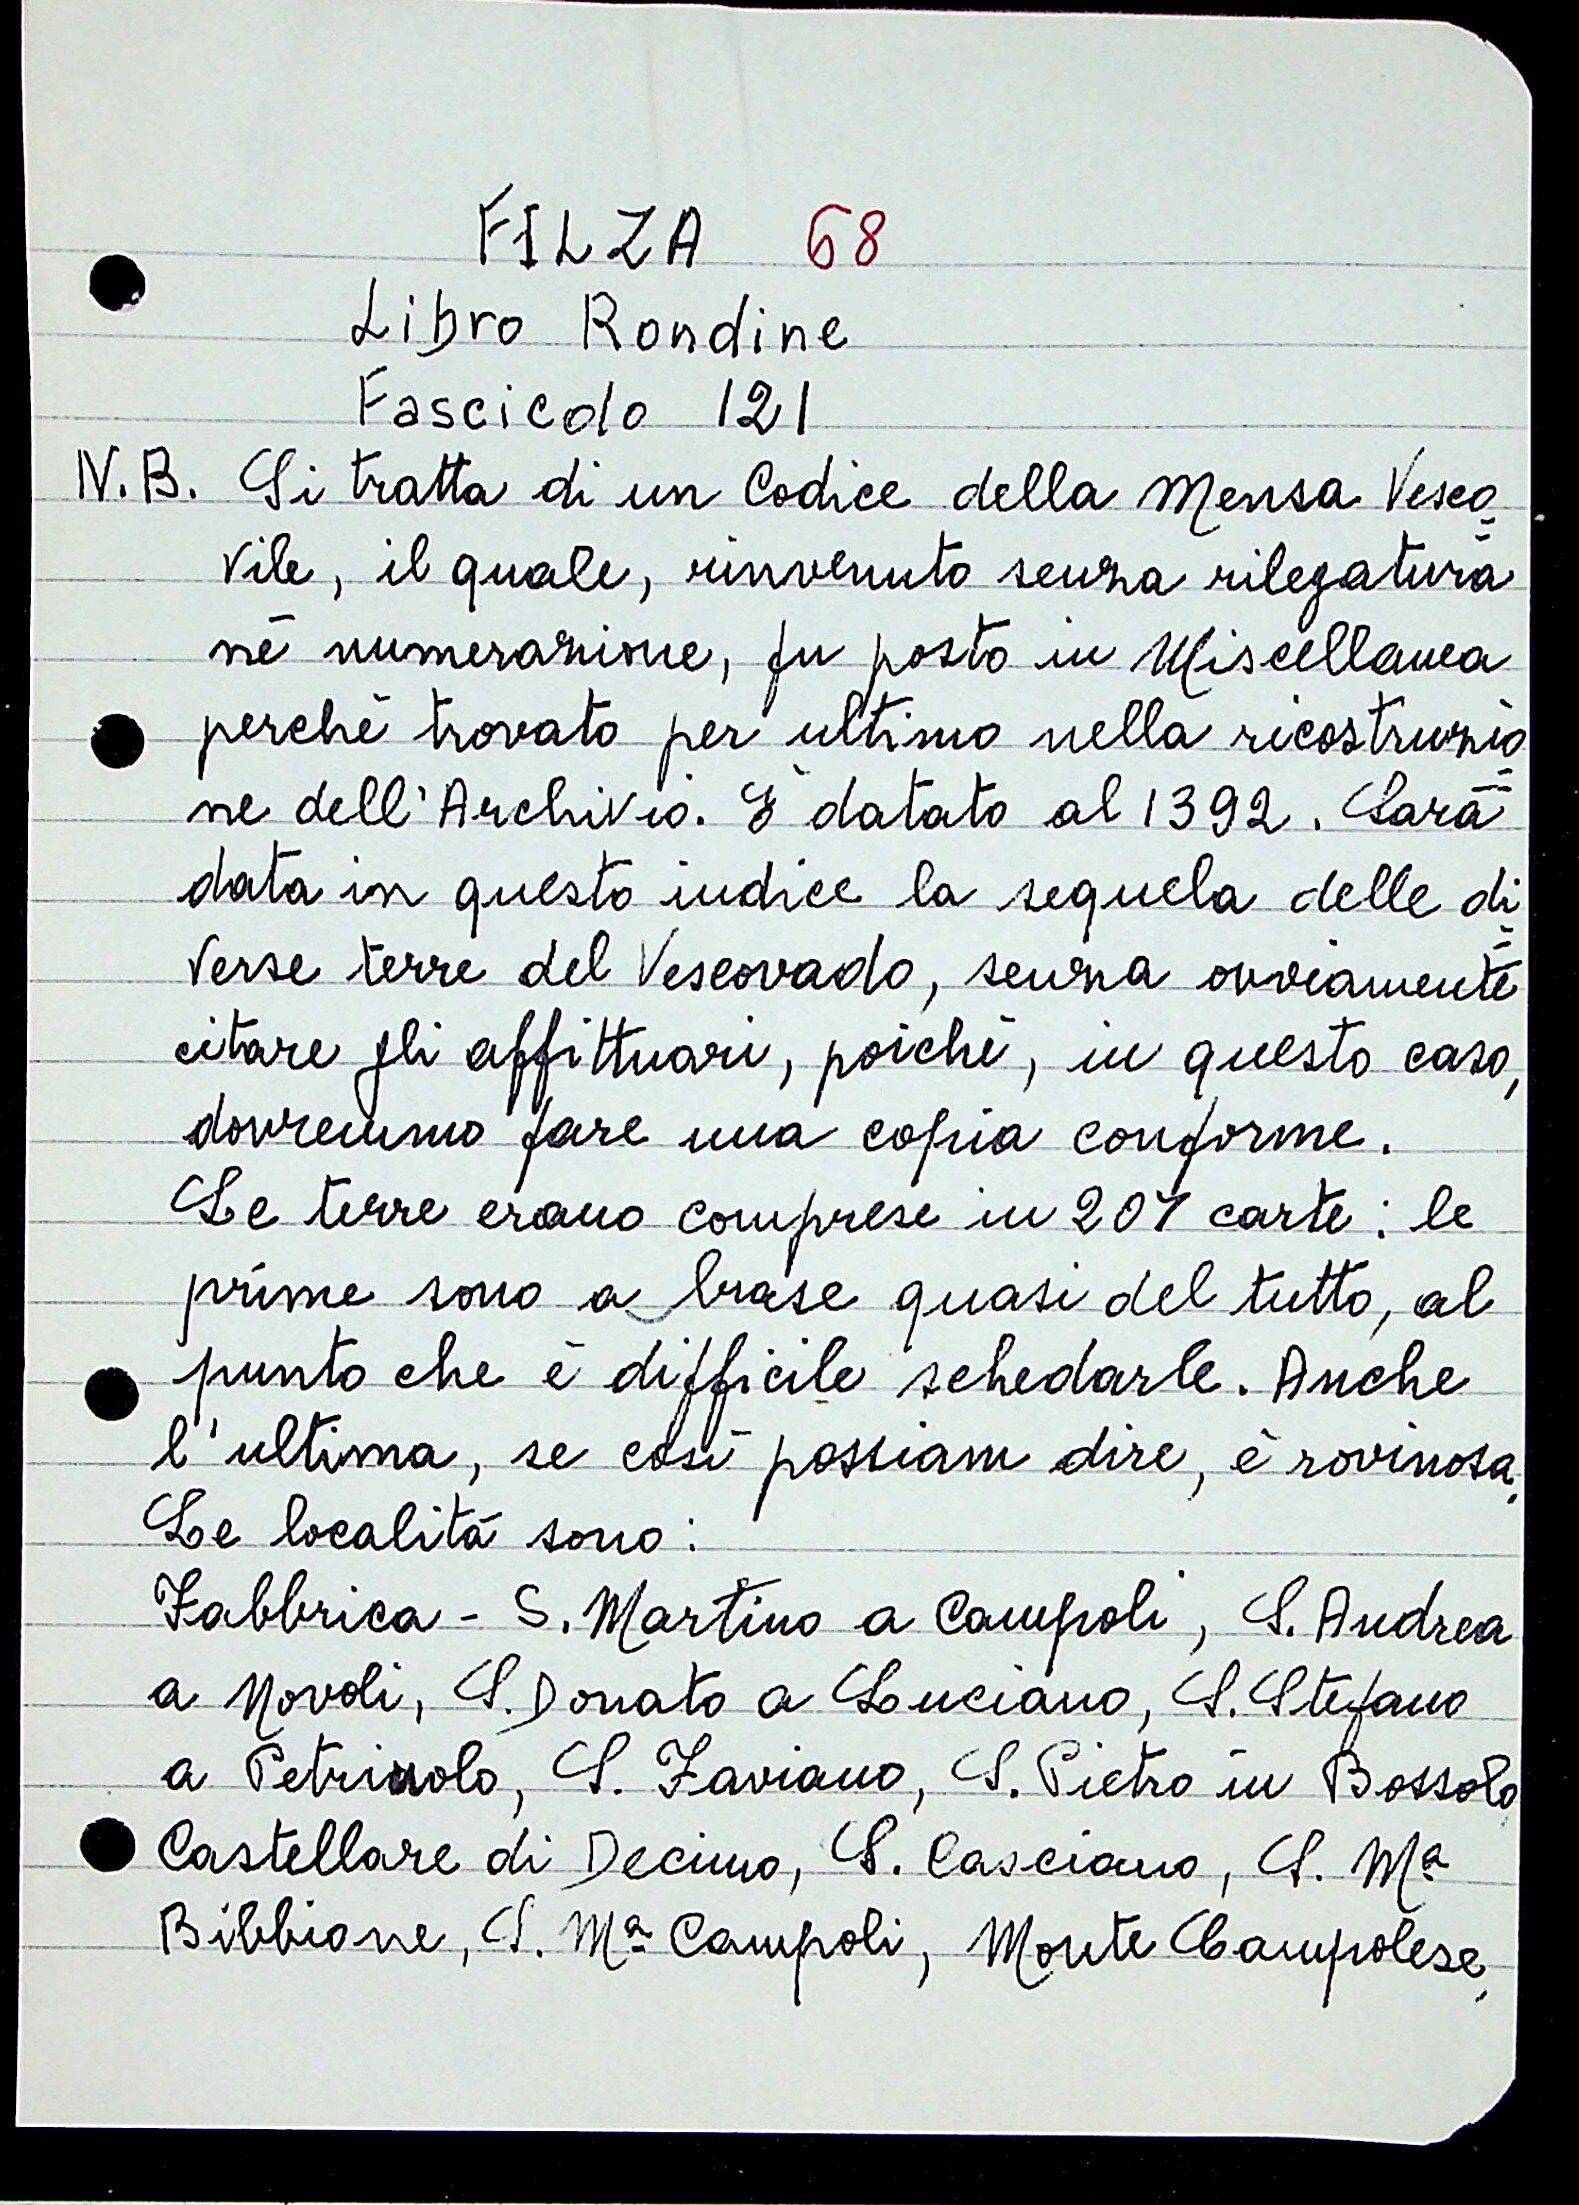 FILZA 68
Libro Rondine
Fascicolo 121
N.B. Si tratta di un Codice della Mensa Vesco=
vile, il quale, rinvenuto senza rilegatura
nè numerazione, fu posto in Miscellanea
perchè trovato per ultimo nella ricostruzio=
ne dell'Archivio. È datato al 1392. Sarà
data in questo indice la sequela delle di=
verse terre del Vescovado, senza ovviamente
citare gli affittuari, poichè, in questo caso,
dovremmo fare una copia conforme.
Le terre erano comprese in 207 carte: le
prime sono a brase quasi del tutto, al
punto che è difficile schedarle. Anche
l'ultima, se così possiam dire, è rovinosa.
Le località sono:
Fabbrica - S. Martino a Campoli, S. Andrea
a Novoli, S. Donato a Luciano, S. Stefano
a Petriuolo, S. Faviano, S. Pietro in Bossolo
Castellare di Decimo, S. Casciano, S. Mª
Bibbione, S. Mª Campoli, Monte Campolese,